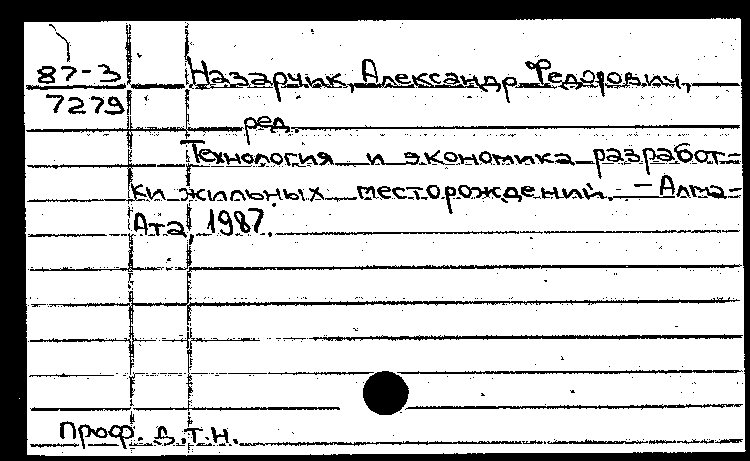 87-3 Назарчик, Александр Федорович,
7279
ред.
Технология и экономика разработ-
ки жильных месторождений. - Алма-
Ата, 1987.
Проф. д.т.н.